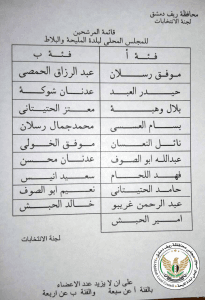 محافظة ريف دمشق
لجنة الانتخابات
قائمة المرشحين
للمجلس المحلي لبلدة المليحة والبلاط
فئة أ
فئة ب
موفق رسلان
عبد الرزاق الحمصي
حيدر العبد
عدنان شوكة
بلال وهبة
معتز الحتيتاني
بسام العس
محمدجمال رسلان
نائل النعمان
موفق الخولي
عبدالله ابو الصوف
عدنان محسن
فهد اللحام
سعيد انيس
حامد الحتيتاني
نعيم ابو الصوف
عبد الرحمن غريبو
خالد الحبش
امير الحبش
لجنة الانتخابات
على ان لا يزيد عدد الاعضاء
بالفئة أ عن سبعة والفئة ب عن اربعة